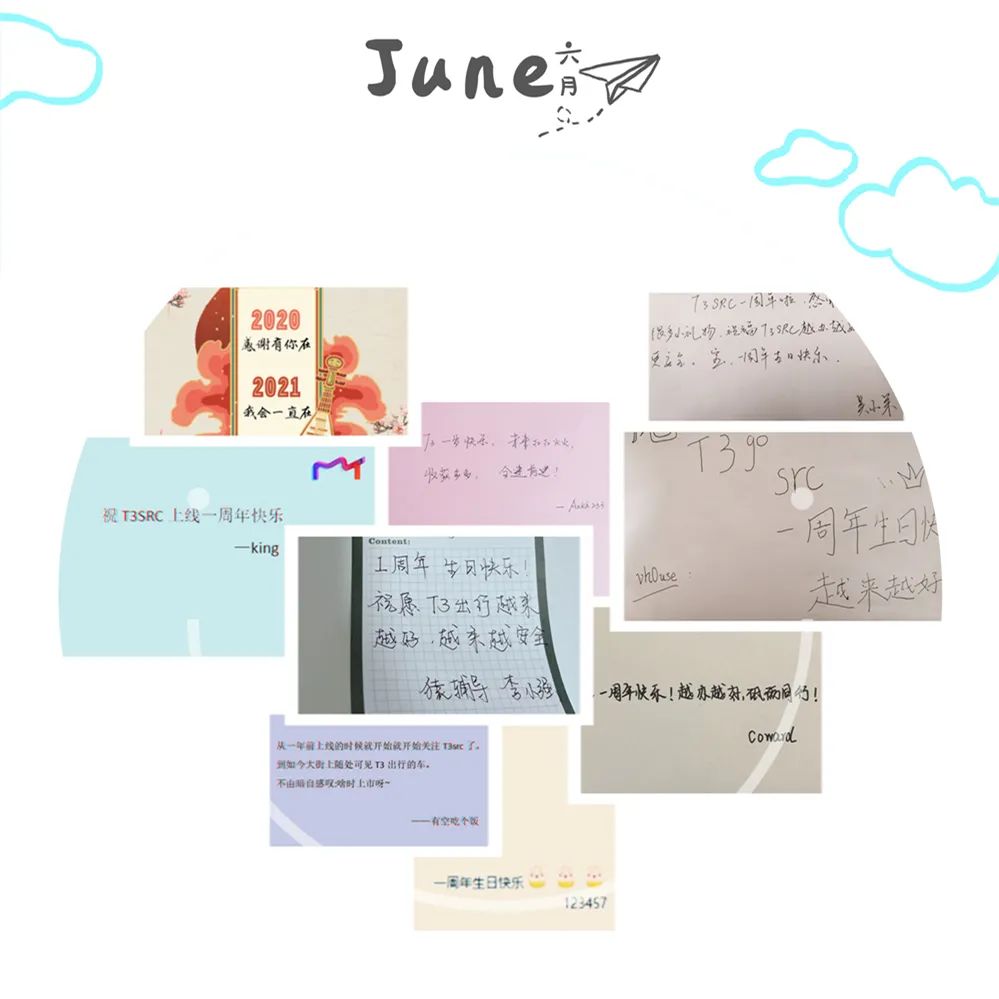 June
六
月
2020
感谢有你在
2021
我会一直在
T3SRC一周年啦,感
很多小礼物,祝福T3SRC越办越
更安全。 一周年生日快乐。
祝 T3SRC 上线一周年快乐
—king
T3 一岁快乐,
收获多多,
T3go
src
一周年生日快
越来越好
vh0use:
Content:
1周年 生日快乐!
祝愿 T3出行越来
越好,越来越安全
猿辅导 李小强
一周年快乐!越办越好,砥砺同行!
Coward
从一年前上线的时候就开始就开始关注 T3src 了。
到如今大街上随处可见 T3 出行的车。
不由暗自感叹:啥时上市呀~
——有空吃个饭
一周年生日快乐
123457